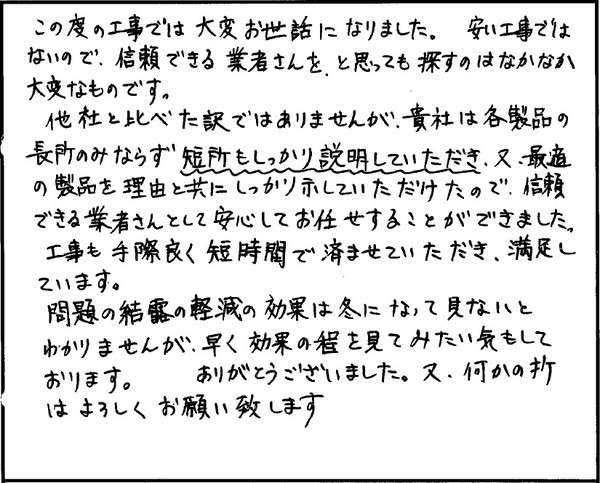 この度の工事では大変お世話になりました。 安い工事では
ないので、信頼できる業者さんを、と思っても探すのはなかなか
大変なものです。
他社と比べた訳ではありませんが、貴社は各製品の
長所のみならず短所もしっかり説明していただき、又、最適
の製品を理由と共にしっかり示していただけたので、信頼
できる業者さんとして安心してお任せすることができました。
工事も手際良く短時間で済ませていただき、満足し
ています。
問題の結露の軽減の効果は冬になって見ないと
わかりませんが、早く効果の程を見てみたい気もして
おります。 ありがとうございました。又、何かの折
はよろしくお願い致します